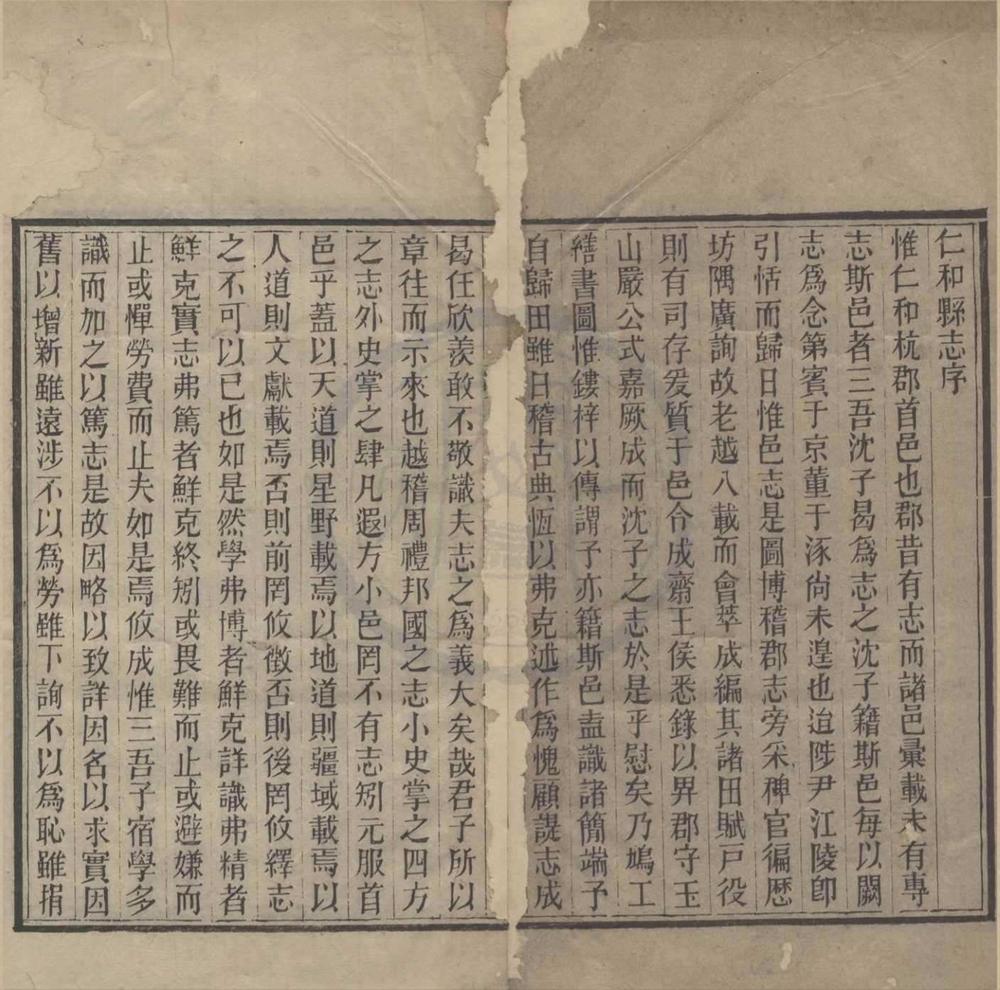 仁和縣志序
惟仁和杭郡首邑也郡昔有志而諸邑彙載未有專
志斯邑者三吾沈子曷爲志之沈子籍斯邑每以闕
志爲念第賓于京董于涿尚未遑也迨陟尹江陵卽
引恬而歸日惟邑志是圖博稽郡志旁采稗官徧歷
坊隅廣詢故老越八載而會萃成編其諸田賦戸役
則有司存爰質于邑令成齋王侯悉錄以畀郡守玉
山嚴公式嘉厥成而沈子之志於是乎慰矣乃鳩工
繕書圖惟鏤梓以傳謂予亦籍斯邑盍識諸簡端予
自歸田雖日稽古典恆以弗克述作爲愧顧諟志成
曷任欣羨敢不敬識夫志之爲義大矣哉君子所以
章往而示來也越稽周禮邦國之志小史掌之四方
之志外史掌之肆凡遐方小邑罔不有志矧元服首
邑乎蓋以天道則星野載焉以地道則疆域載焉以
人道則文獻載焉否則前罔攸徵否則後罔攸繹志
之不可以已也如是然學弗博者鮮克詳識弗精者
鮮克實志弗篤者鮮克終矧或畏難而止或避嫌而
止或憚勞費而止夫如是焉攸成惟三吾子宿學多
識而加之以篤志是故因略以致詳因名以求實因
舊以增新雖遠涉不以爲勞雖下詢不以爲恥雖捐